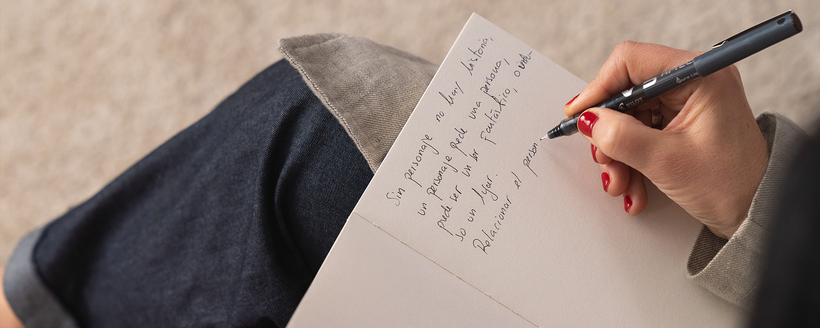 Sin personaje no hay historia,
un personaje puede una persona,
puede ser un ser Fantástico, o
so un lugar.
Relacionar el person
PILOT